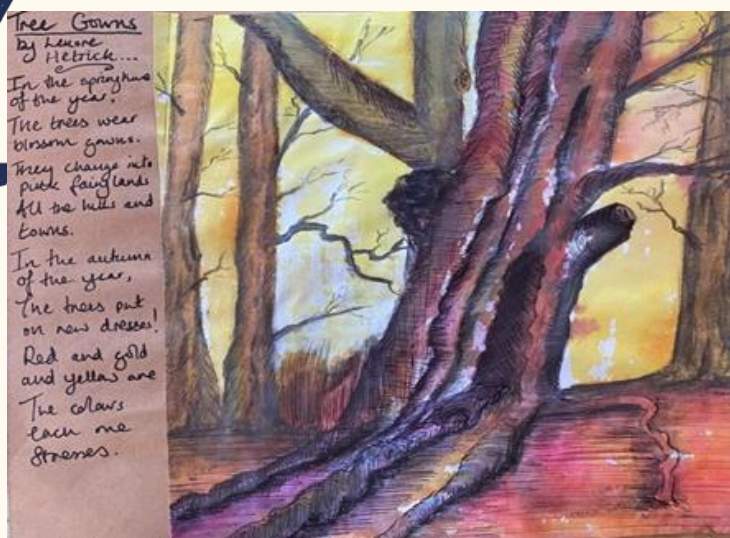 Tree Gowns
by Lenore
Hetrick...
In the springtime
of the year,
The trees wear
blossom gowns.
They change into
pink fairylands
All the hills and
towns.
In the autumn
of the year,
The trees put
on new dresses!
Red and gold
and yellow are
The colours
each one
stresses.